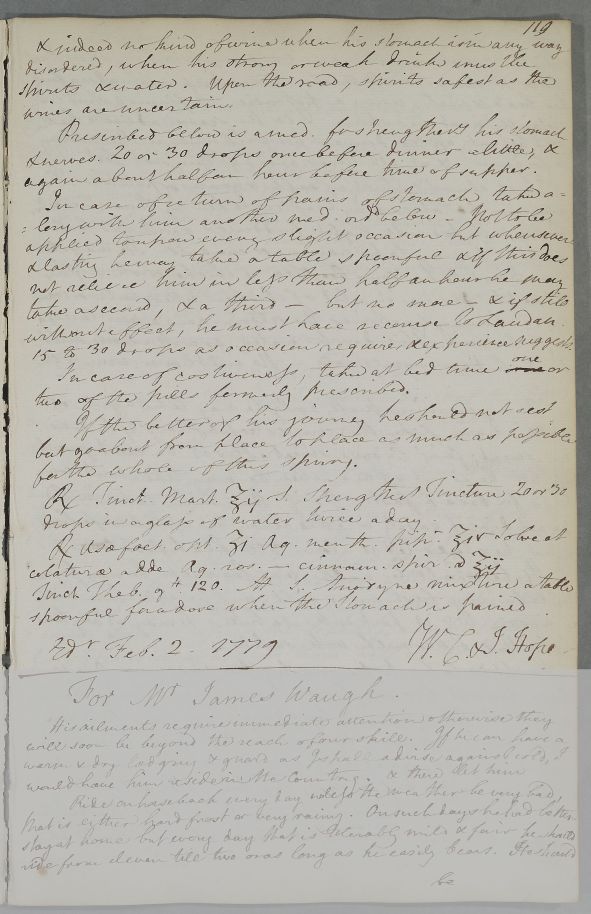 119
& indeed no kind of wine when his stomach is in any way
disordered, when his strong or weak drink must be
spirits & water. Upon the road, spirits safest as the
wines are uncertain.
Prescribed below is a med. for strengthens his stomach
& nerves. 20 or 30 drops once before dinner a little, &
again about half an hour before time of supper.
In case of return of pains of stomach take a-
-long with him another med. ord below. Not to be
applied to upon every slight occasion but whensever
& lasting he may take a table spoonful & if this does
not relieve him in less than half an hour he may
take a second, & a third – but no more – & if still
without effect, he must have recourse to Laudan.
15 to 30 drops as occasion requires & experience suggests.
In case of costiveness, take at bed time one or
two of the pills formerly prescribed.
If the better of his journey he should not rest
but go about from place to place as much as possible
for the whole of this spring.
℞ Tinct. Mart. ʒij S. Strengthens Tincture 20 or 30
drops in a glass of water twice a day.
℞ Asæ foet. opt. ʒi Aq. menth. pip. ℥iv Solve et
colaturæ adde Aq. ros. — cinnam. spir. a ℥ij
Tinct Theb. gtt 120. M S. Anodyne mixture a table
spoonful for a dose when the stomach is pained
Edr. Feb. 2. 1779 W. C. & J. Hope
For Mr James Waugh.
His ailments require immediate attention otherwise they
will soon be beyond the reach of our skill. If he can have a
warm & dry lodging & guard as I shall advise against cold, I
would have him reside in the Country. & there let him
Ride on horseback every day unless the weather be very bad,
that is either hard frost or very rainy. On such days he had better
stay at home but every day that is tolerably mild & fair he should
ride from eleven till two or as long as he easily bears. He should
be